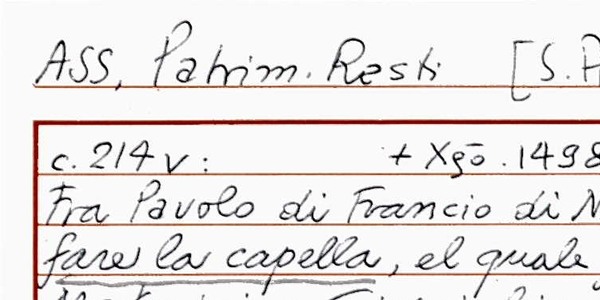 ASS, Patrim. Resti [S.P
c. 214v: + Xgō. 1498
Fra Pavolo di Francio di N
fare la capella, el quale